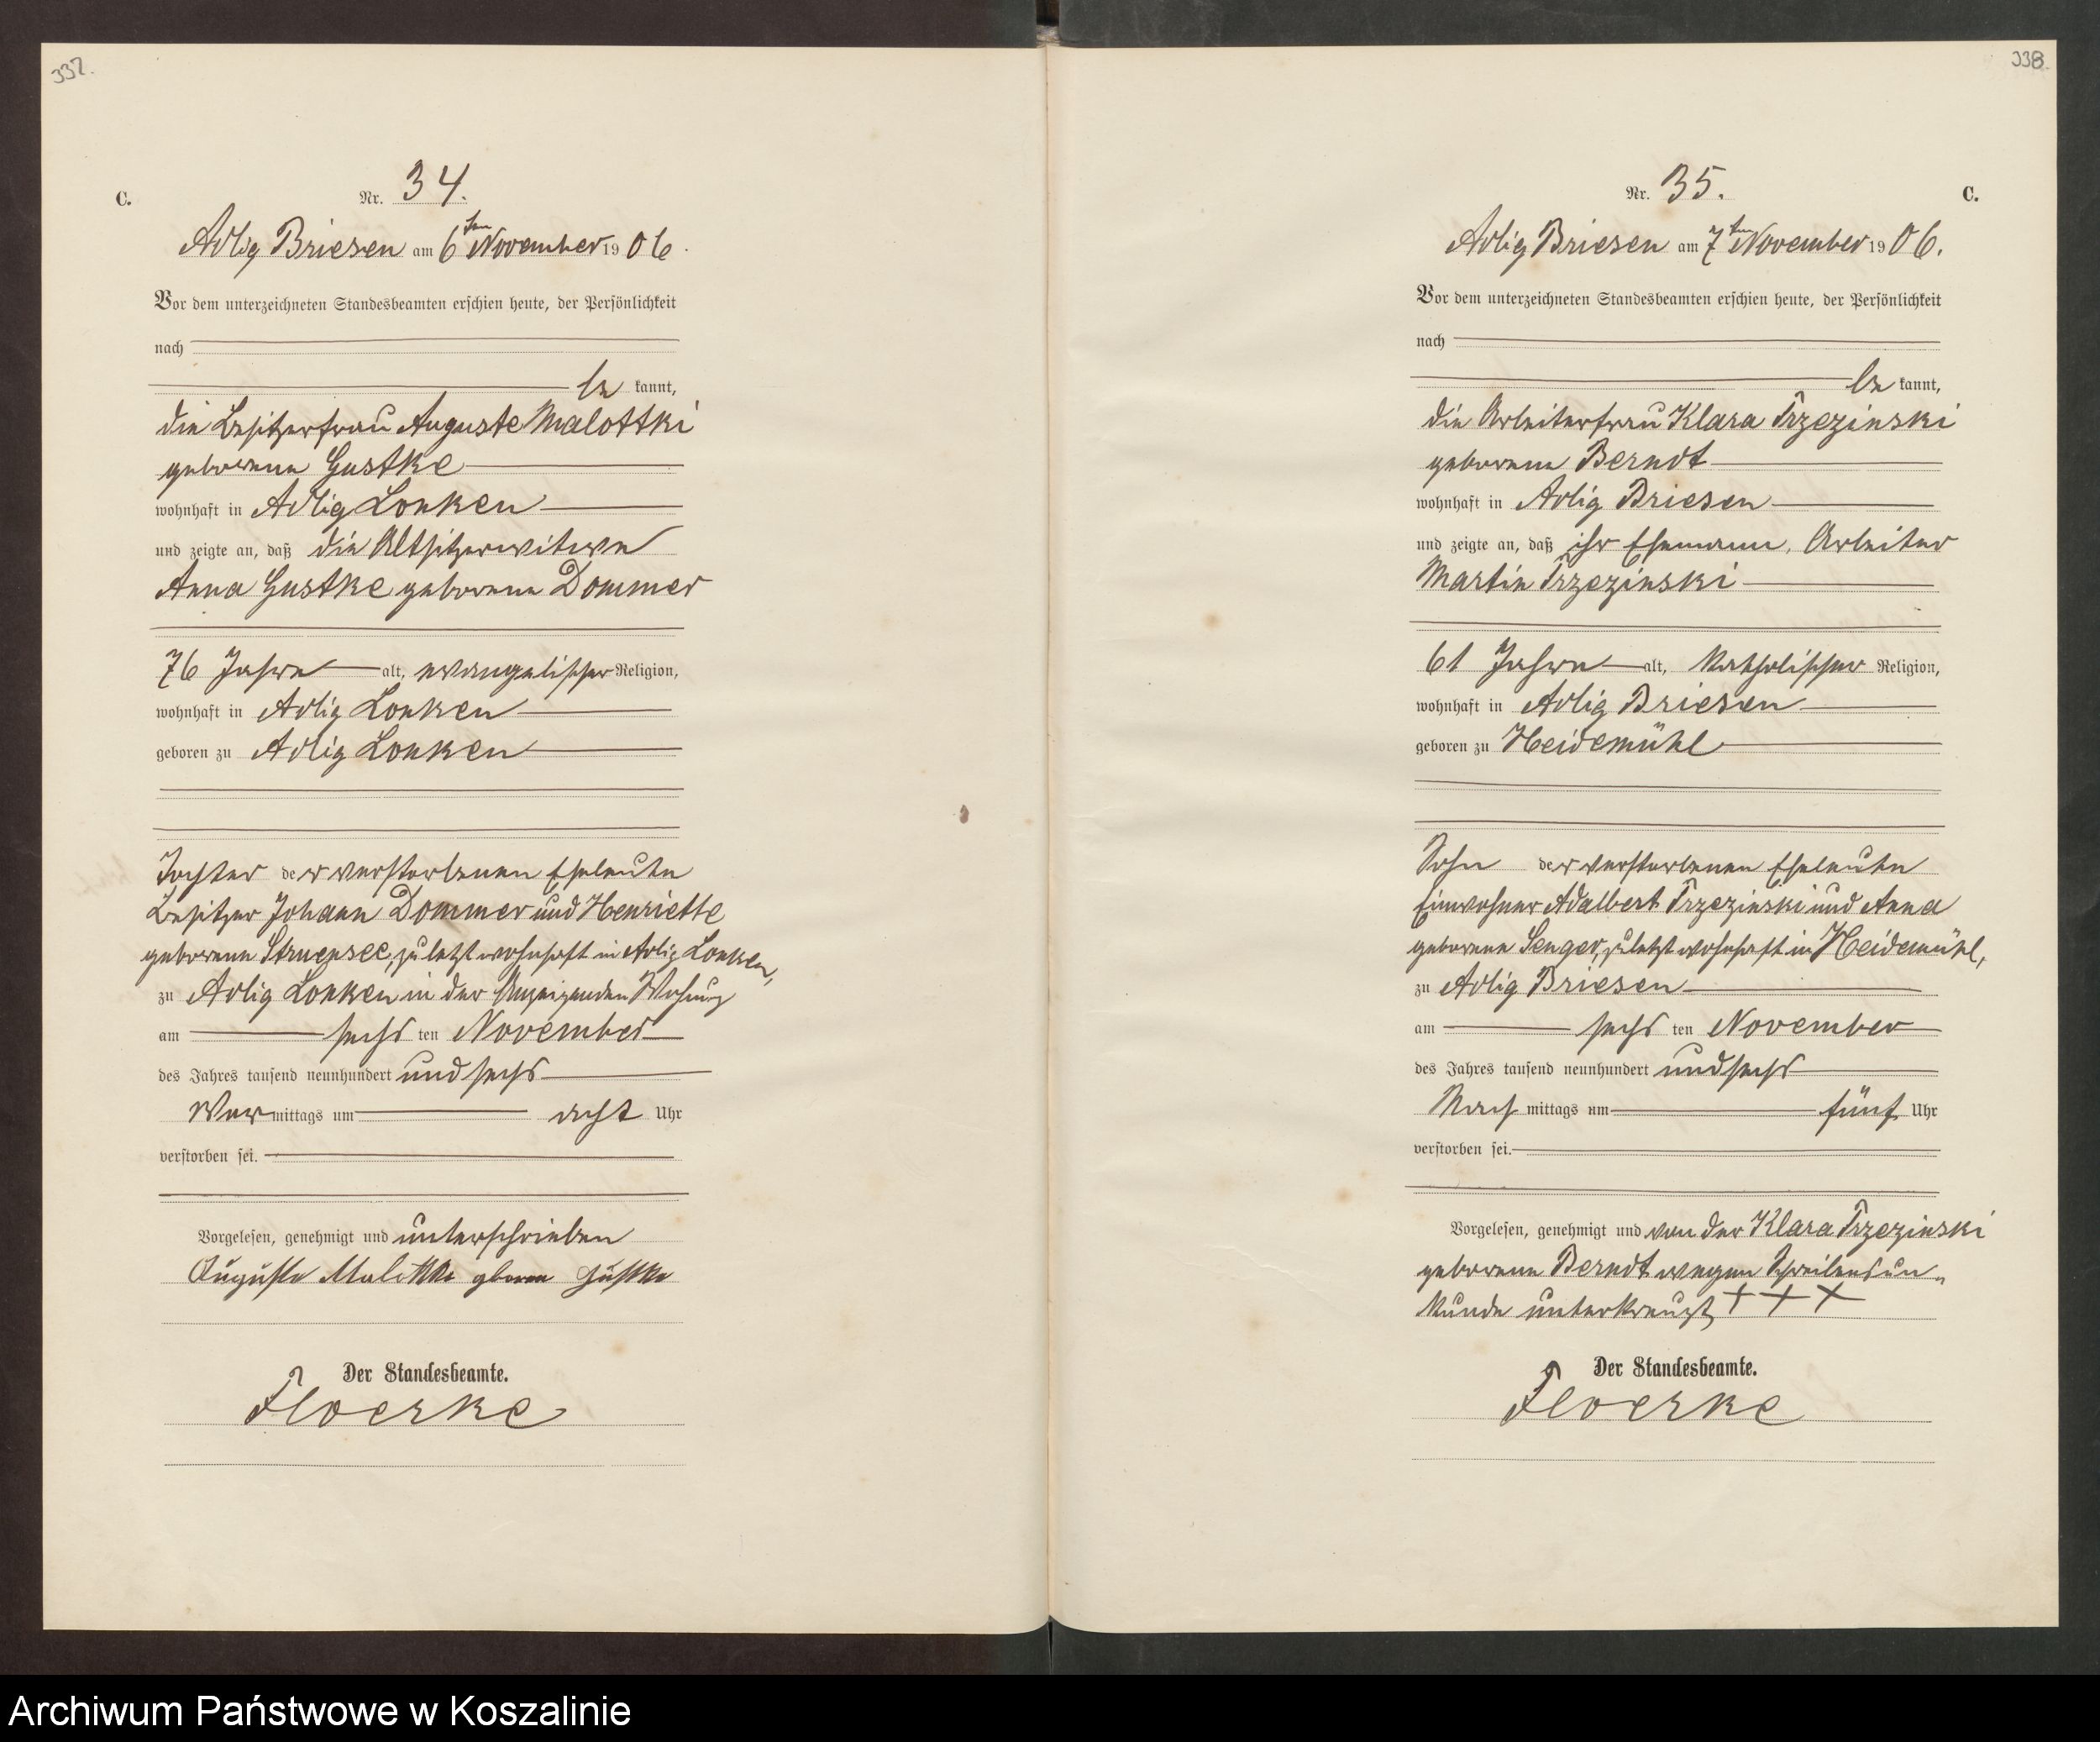 337.
C.
Nr. 34.
Adlig Briesen am 6ten November 1906.
Vor dem unterzeichneten Standesbeamten erschien heute, der Persönlichkeit
nach
be kannt,
die Besitzerfrau Auguste Malottki
geborene Gustke
wohnhaft in Adlig Lonken
und zeigte an, daß die Altsitzerwitwe
Anna Gustke geborene Dommer
76 Jahre alt, evangelischer Religion,
wohnhaft in Adlig Lonken
geboren zu Adlig Lonken
Tochter der verstorbenen Eheleute
Besitzer Johann Dommer und Henriette
geborene Struensee, zuletzt wohnhaft in Adlig Lonken,
zu Adlig Lonken in der Anzeigenden Wohnung
am sechs ten November
des Jahres tausend neunhundert und sechs
Vor mittags um acht Uhr
verstorben sei.
Vorgelesen, genehmigt und unterschrieben
Auguste Malottki geborene Gustke
Der Standesbeamte.
Floerke
338.
Nr. 35.
C.
Adlig Briesen am 7ten November 1906.
Vor dem unterzeichneten Standesbeamten erschien heute, der Persönlichkeit
nach
be kannt,
die Arbeiterfrau Klara Trzezinski
geborene Berndt
wohnhaft in Adlig Briesen
und zeigte an, daß ihr Ehemann, Arbeiter
Martin Trzezinski
61 Jahre alt, katholischer Religion,
wohnhaft in Adlig Briesen
geboren zu Heidemühl
Sohn der verstorbenen Eheleute
Einwohner Adalbert Trzezinski und Anna
geborene Senger, zuletzt wohnhaft in Heidemühl,
zu Adlig Briesen
am sechs ten November
des Jahres tausend neunhundert und sechs
Nach mittags um fünf Uhr
verstorben sei.
Vorgelesen, genehmigt und von der Klara Trzezinski
geborene Berndt wegen Schreibensun-
kunde unterkreuzt + + +
Der Standesbeamte.
Floerke
Archiwum Państwowe w Koszalinie